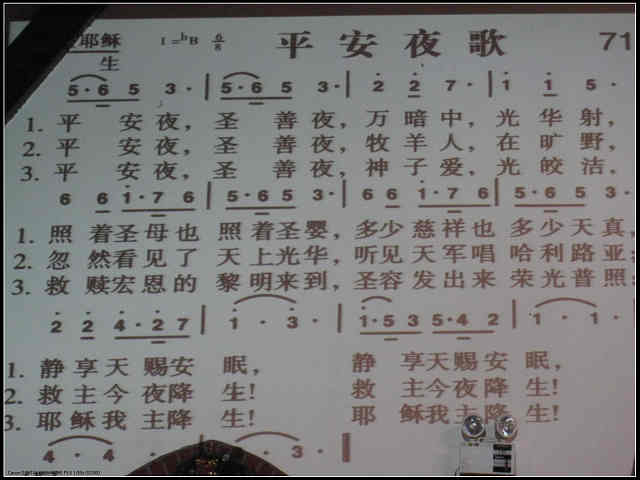 耶稣 1=bB 6/8 平安夜歌 71
生
5·6 5 3· | 5·6 5 3· | 2 2 7· | 1 1 5·
1. 平 安夜， 圣 善夜， 万暗中， 光华射，
2. 平 安夜， 圣 善夜， 牧羊人， 在旷野，
3. 平 安夜， 圣 善夜， 神子爱， 光皎洁，
6 6 1·7 6 | 5·6 5 3· | 6 6 1·7 6 | 5·6 5 3·
1. 照 着圣母也 照着圣婴， 多少慈祥也 多少天真，
2. 忽 然看见了 天上光华， 听见天军唱 哈利路亚；
3. 救 赎宏恩的 黎明来到， 圣容发出来 荣光普照
2 2 4·2 7 | 1· 3· | 1·5 3 5·4 2 | 1· 1·
1. 静 享天赐安 眠， 静 享天赐安 眠，
2. 救 主今夜降 生！ 救 主今夜降 生！
3. 耶 稣我主降 生！ 耶 稣我主降 生！
4· 4· · 3· |